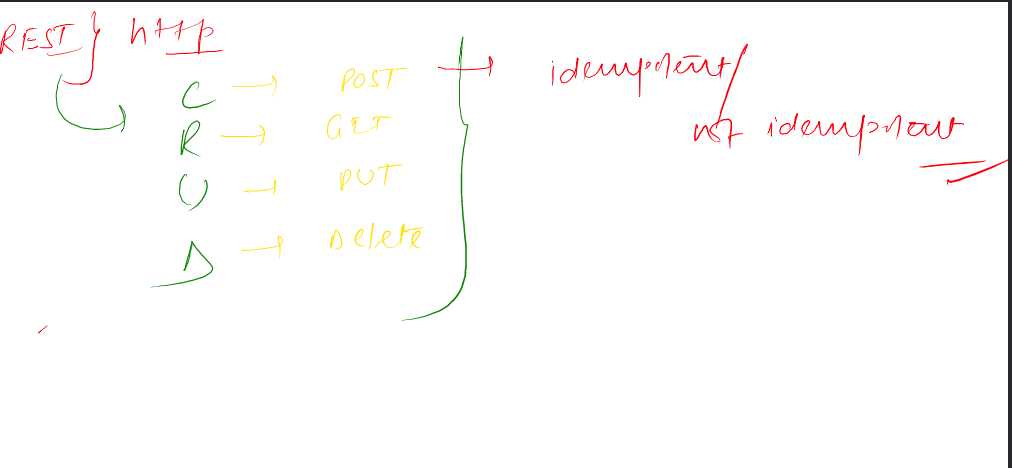 REST http
C → POST
R → GET
U → PUT
D → Delete
idempotent/
not idempotent